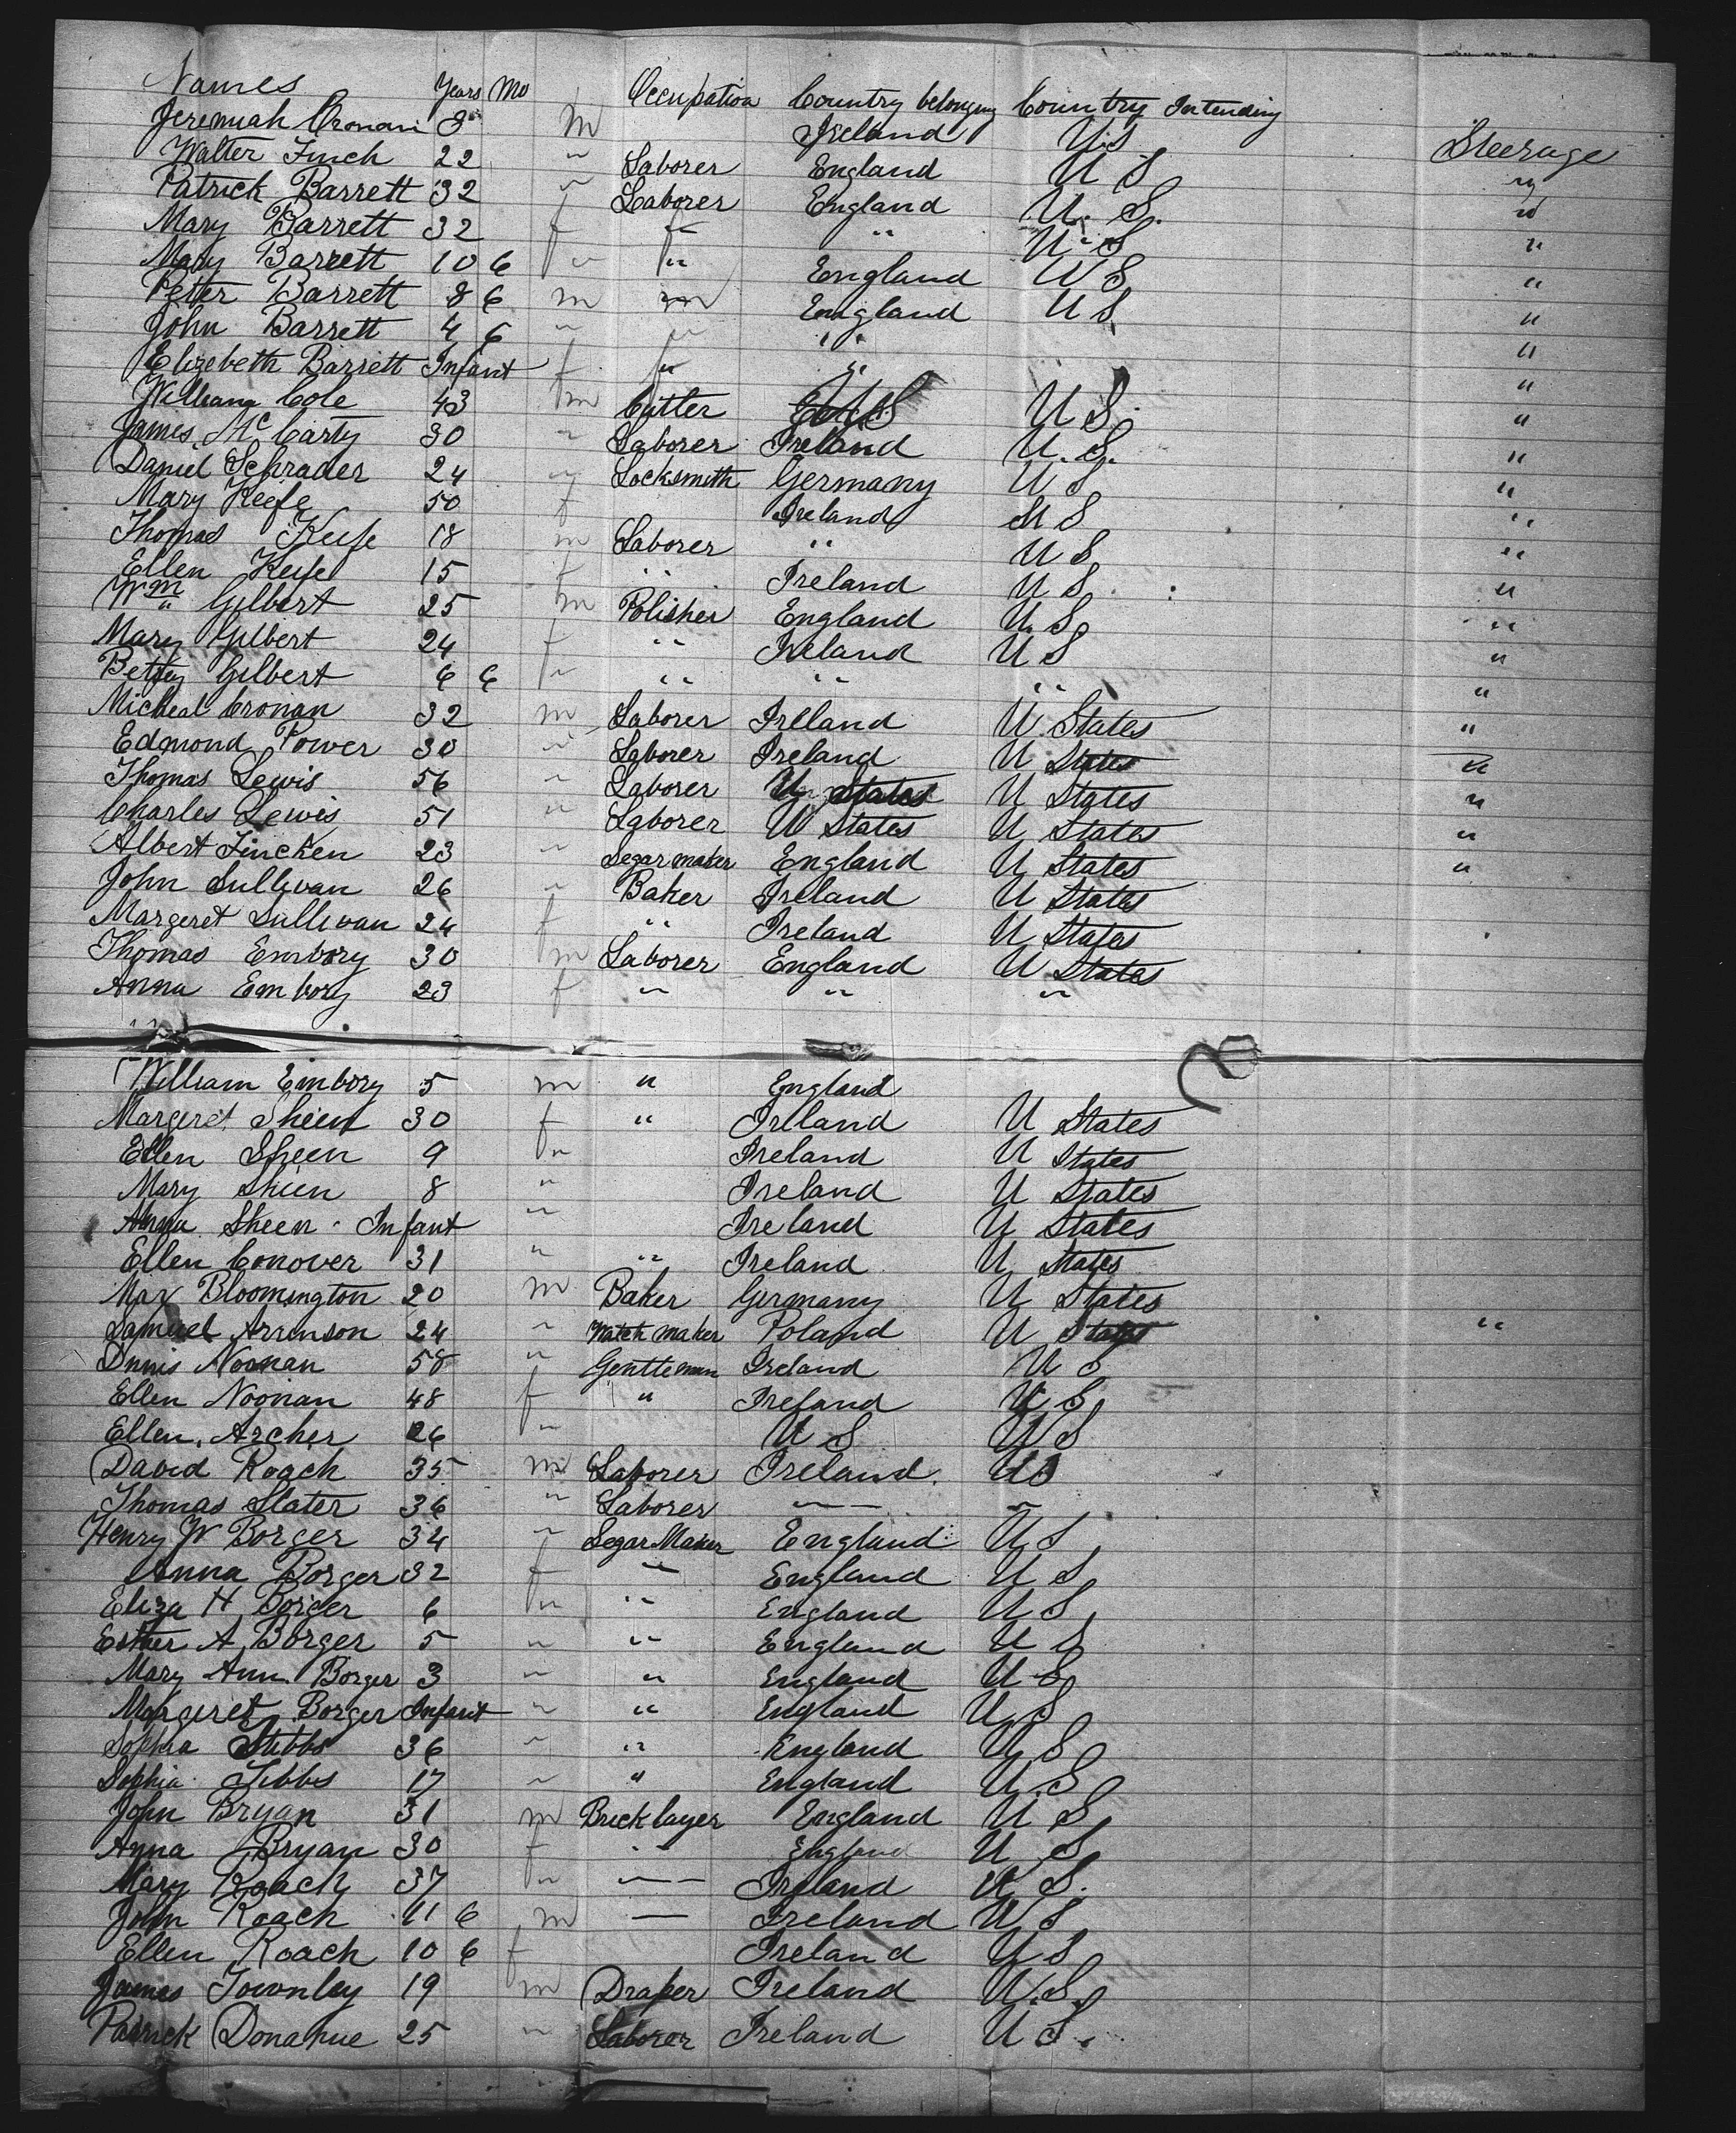 Names Years Mo Occupation Country belonging Country Intending
Jeremiah Cronan 3 m Ireland U.S Steerage
Walter Finch 22 " Laborer England U S "
Patrick Barrett 32 " Laborer England U. S. "
Mary Barrett 32 f " " U S "
Mary Barrett 10 6 f " " England U S "
Peter Barrett 8 6 m m England U S "
John Barrett 4 6 " " " "
Elizebeth Barrett Infant f " " "
William Cole 43 m Cutter U S U S. "
James McCarty 30 " Laborer Ireland U. S. "
Daniel Schrader 24 " Locksmith Germany U S "
Mary Keefe 50 f Ireland U S "
Thomas Keefe 18 m Laborer " U S "
Ellen Keefe 15 f " Ireland U S "
Wm Gilbert 25 m Polisher England U. S. "
Mary Gilbert 24 f " Ireland U S "
Betsey Gilbert 6 6 f " " " " "
Micheal Cronan 32 m Laborer Ireland U. States "
Edmond Power 30 " Laborer Ireland U States "
Thomas Lewis 56 " Laborer U States U States "
Charles Lewis 51 " Laborer U States U States "
Albert Fincken 23 " Segar maker England U States "
John Sullivan 26 " Baker Ireland U States
Margeret Sullivan 24 f " Ireland U States
Thomas Embory 30 m Laborer England U States
Anna Embory 23 f " " "
William Embory 5 m " England
Margeret Sheen 30 f " Ireland U States
Ellen Sheen 9 f " Ireland U States
Mary Sheen 8 " Ireland U States
Anna Sheen Infant " Ireland U States
Ellen Conover 31 " " Ireland U States
Max Bloomington 20 m Baker Germany U States
Samuel Arrinson 24 " Watch maker Poland U States "
Dnnis Noonan 58 " Gentleman Ireland U S
Ellen Noonan 48 f " Ireland U S
Ellen Archer 26 " U S U S
David Roach 35 m Laborer Ireland. U S
Thomas Slater 36 " Laborer " "
Henry W Borger 34 " Segar Maker England U S
Anna Borger 32 f " England U S
Eliza H Borger 6 f " " England U S
Esther A Borger 5 " " England U S
Mary Ann Borger 3 " " England U S
Margeret Borger Infant " " England U S
Sophia Stibbs 36 " " England U S
Sophia Tibbs 17 " " England U. S
John Bryan 31 m Brick layer England U S
Anna Bryan 30 f " England U S
Mary Roach 37 f " " Ireland U S.
John Roach 11 6 m — Ireland U S
Ellen Roach 10 6 f Ireland U S
James Townley 19 m Draper Ireland U. S.
Patrick Donahue 25 " Laborer Ireland U S.